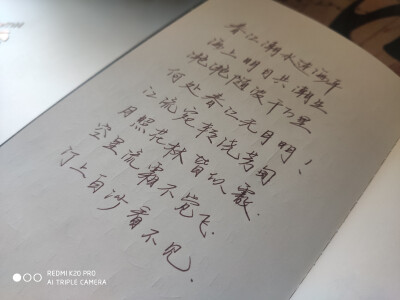 春江潮水连海平
海上明月共潮生
滟滟随波千万里
何处春江无月明！
江流宛转浇芳甸
月照花林皆似霰.
空里流霜不觉飞.
汀上白沙看不见.
REDMI K20 PRO
AI TRIPLE CAMERA